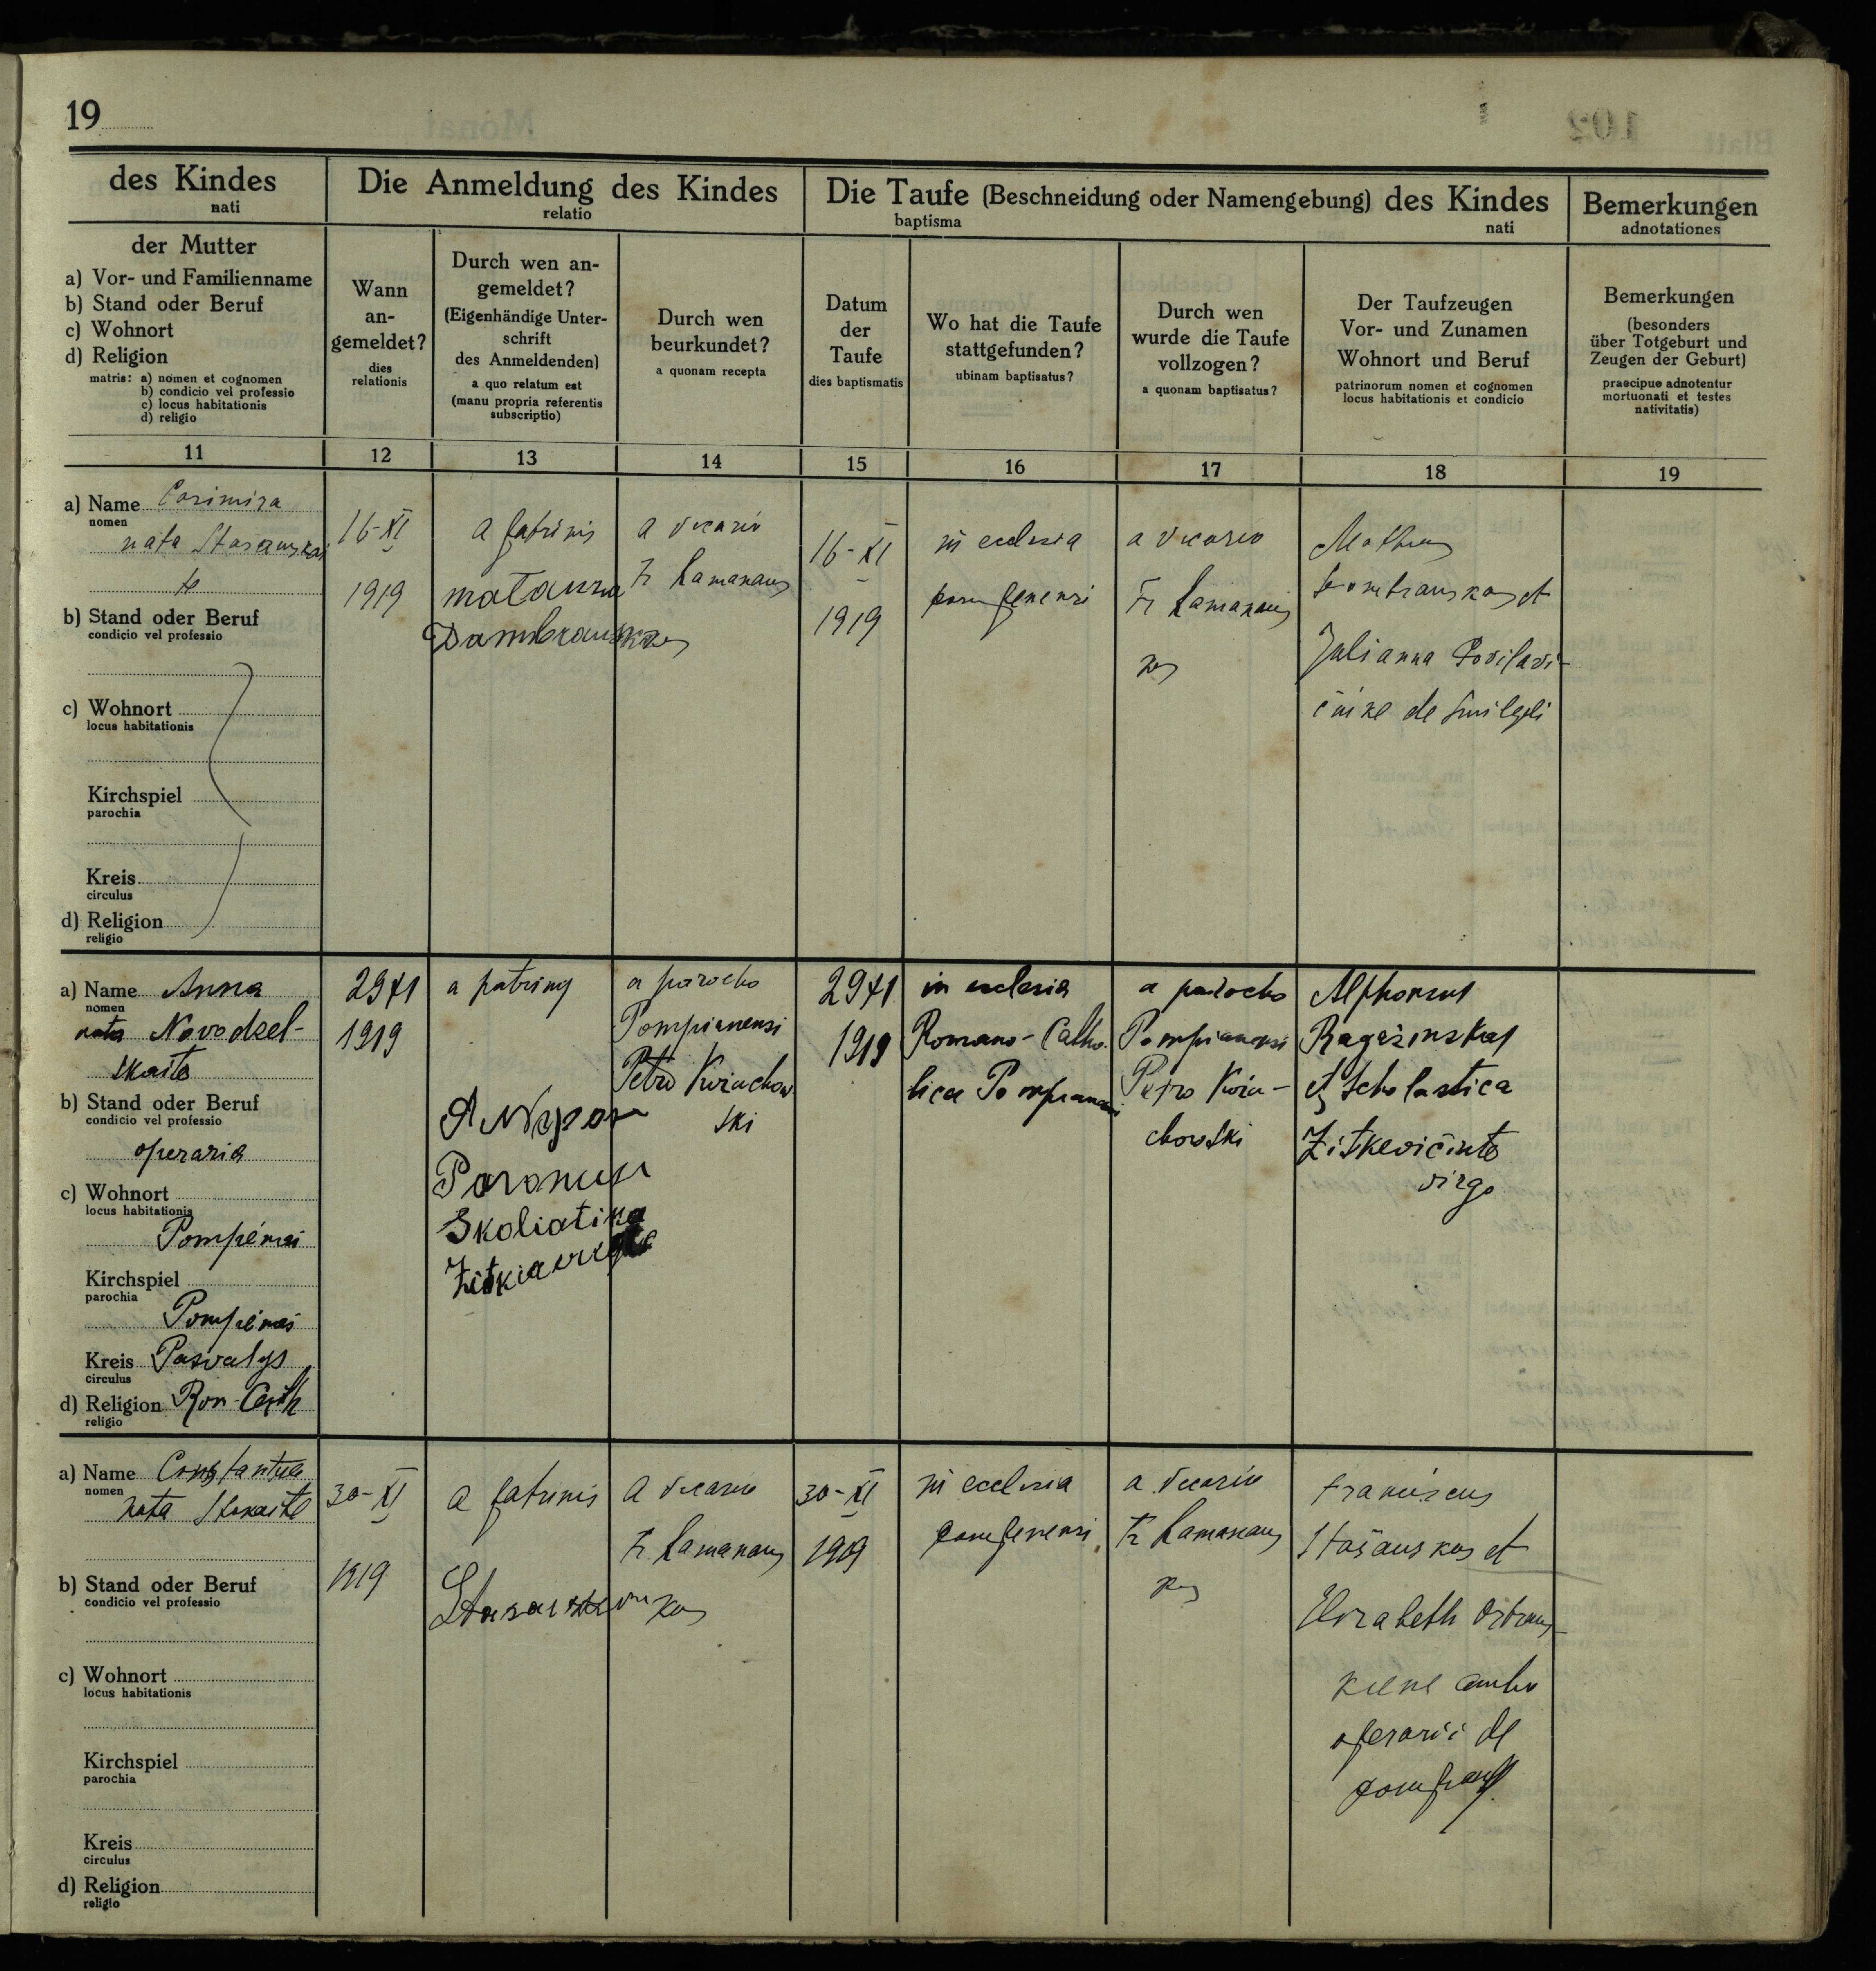 19
des Kindes
nati
Die Anmeldung des Kindes
relatio
Die Taufe (Beschneidung oder Namengebung) des Kindes
baptisma
nati
Bemerkungen
adnotationes
der Mutter
a) Vor- und Familienname
b) Stand oder Beruf
c) Wohnort
d) Religion
matris: a) nomen et cognomen
b) condicio vel professio
c) locus habitationis
d) religio
Wann
an-
gemeldet?
dies
relationis
Durch wen an-
gemeldet?
(Eigenhändige Unter-
schrift
des Anmeldenden)
a quo relatum est
(manu propria referentis
subscriptio)
Durch wen
beurkundet?
a quonam recepta
Datum
der
Taufe
dies baptismatis
Wo hat die Taufe
stattgefunden?
ubinam baptisatus?
Durch wen
wurde die Taufe
vollzogen?
a quonam baptisatus?
Der Taufzeugen
Vor- und Zunamen
Wohnort und Beruf
patrinorum nomen et cognomen
locus habitationis et condicio
Bemerkungen
(besonders
über Totgeburt und
Zeugen der Geburt)
praecipue adnotentur
mortuonati et testes
nativitatis)
11 12 13 14 15 16 17 18 19
a) Name Casimira
nomen
nata
te
b) Stand oder Beruf
condicio vel professio
c) Wohnort
locus habitationis
Kirchspiel
parochia
Kreis
circulus
d) Religion
religio
16-XI
1919
a patrinis
Dambrauskas
a vicario
Fr
16-XI
1919
in ecclesia
a vicario
Fr
kas
et
Julianna Povilavi-
de
a) Name Anna
nomen
nata Novodzel-
skaite
b) Stand oder Beruf
condicio vel professio
operaria
c) Wohnort
locus habitationis
Pompėnai
Kirchspiel
parochia
Pompėnai
Kreis Pasvalys
circulus
d) Religion Rom-Cath
religio
29 XI
1919
a patrinis
Skoliatika
a parocho
Pompianensi
Petro Kwiachow
ski
29 XI
1919
in ecclesia
Romano-Catho-
lica Pompianensi
a parocho
Pompianensi
Petro Kwia-
chowski
Alphonsus
Ragažinskas
et Scholastica
Žitkevičiute
virgo
a) Name
nomen
nata
b) Stand oder Beruf
condicio vel professio
c) Wohnort
locus habitationis
Kirchspiel
parochia
Kreis
circulus
d) Religion
religio
30-XI
1919
a patrinis
a vicario
Fr.
30-XI
1919
in ecclesia
a vicario
Fr
kas
Franciscus
Stašauskas et
Elizabeth
kiene ambo
operarii de